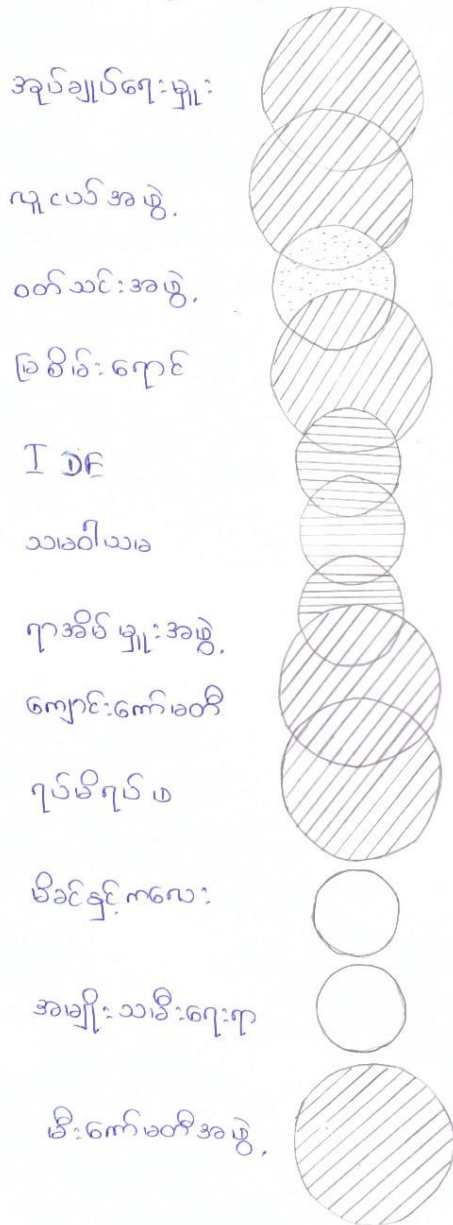 အုပ်ချုပ်ရေးမှူး
လူငယ်အဖွဲ့
ဝတ်သင်းအဖွဲ့
မြစိမ်းရောင်
I DE
သမဝါယမ
ရာအိမ်မှူးအဖွဲ့
ကျောင်းကော်မတီ
ရပ်မိရပ်ဖ
မိခင်နှင့်ကလေး
အမျိုးသမီးရေးရာ
မီးကော်မတီအဖွဲ့